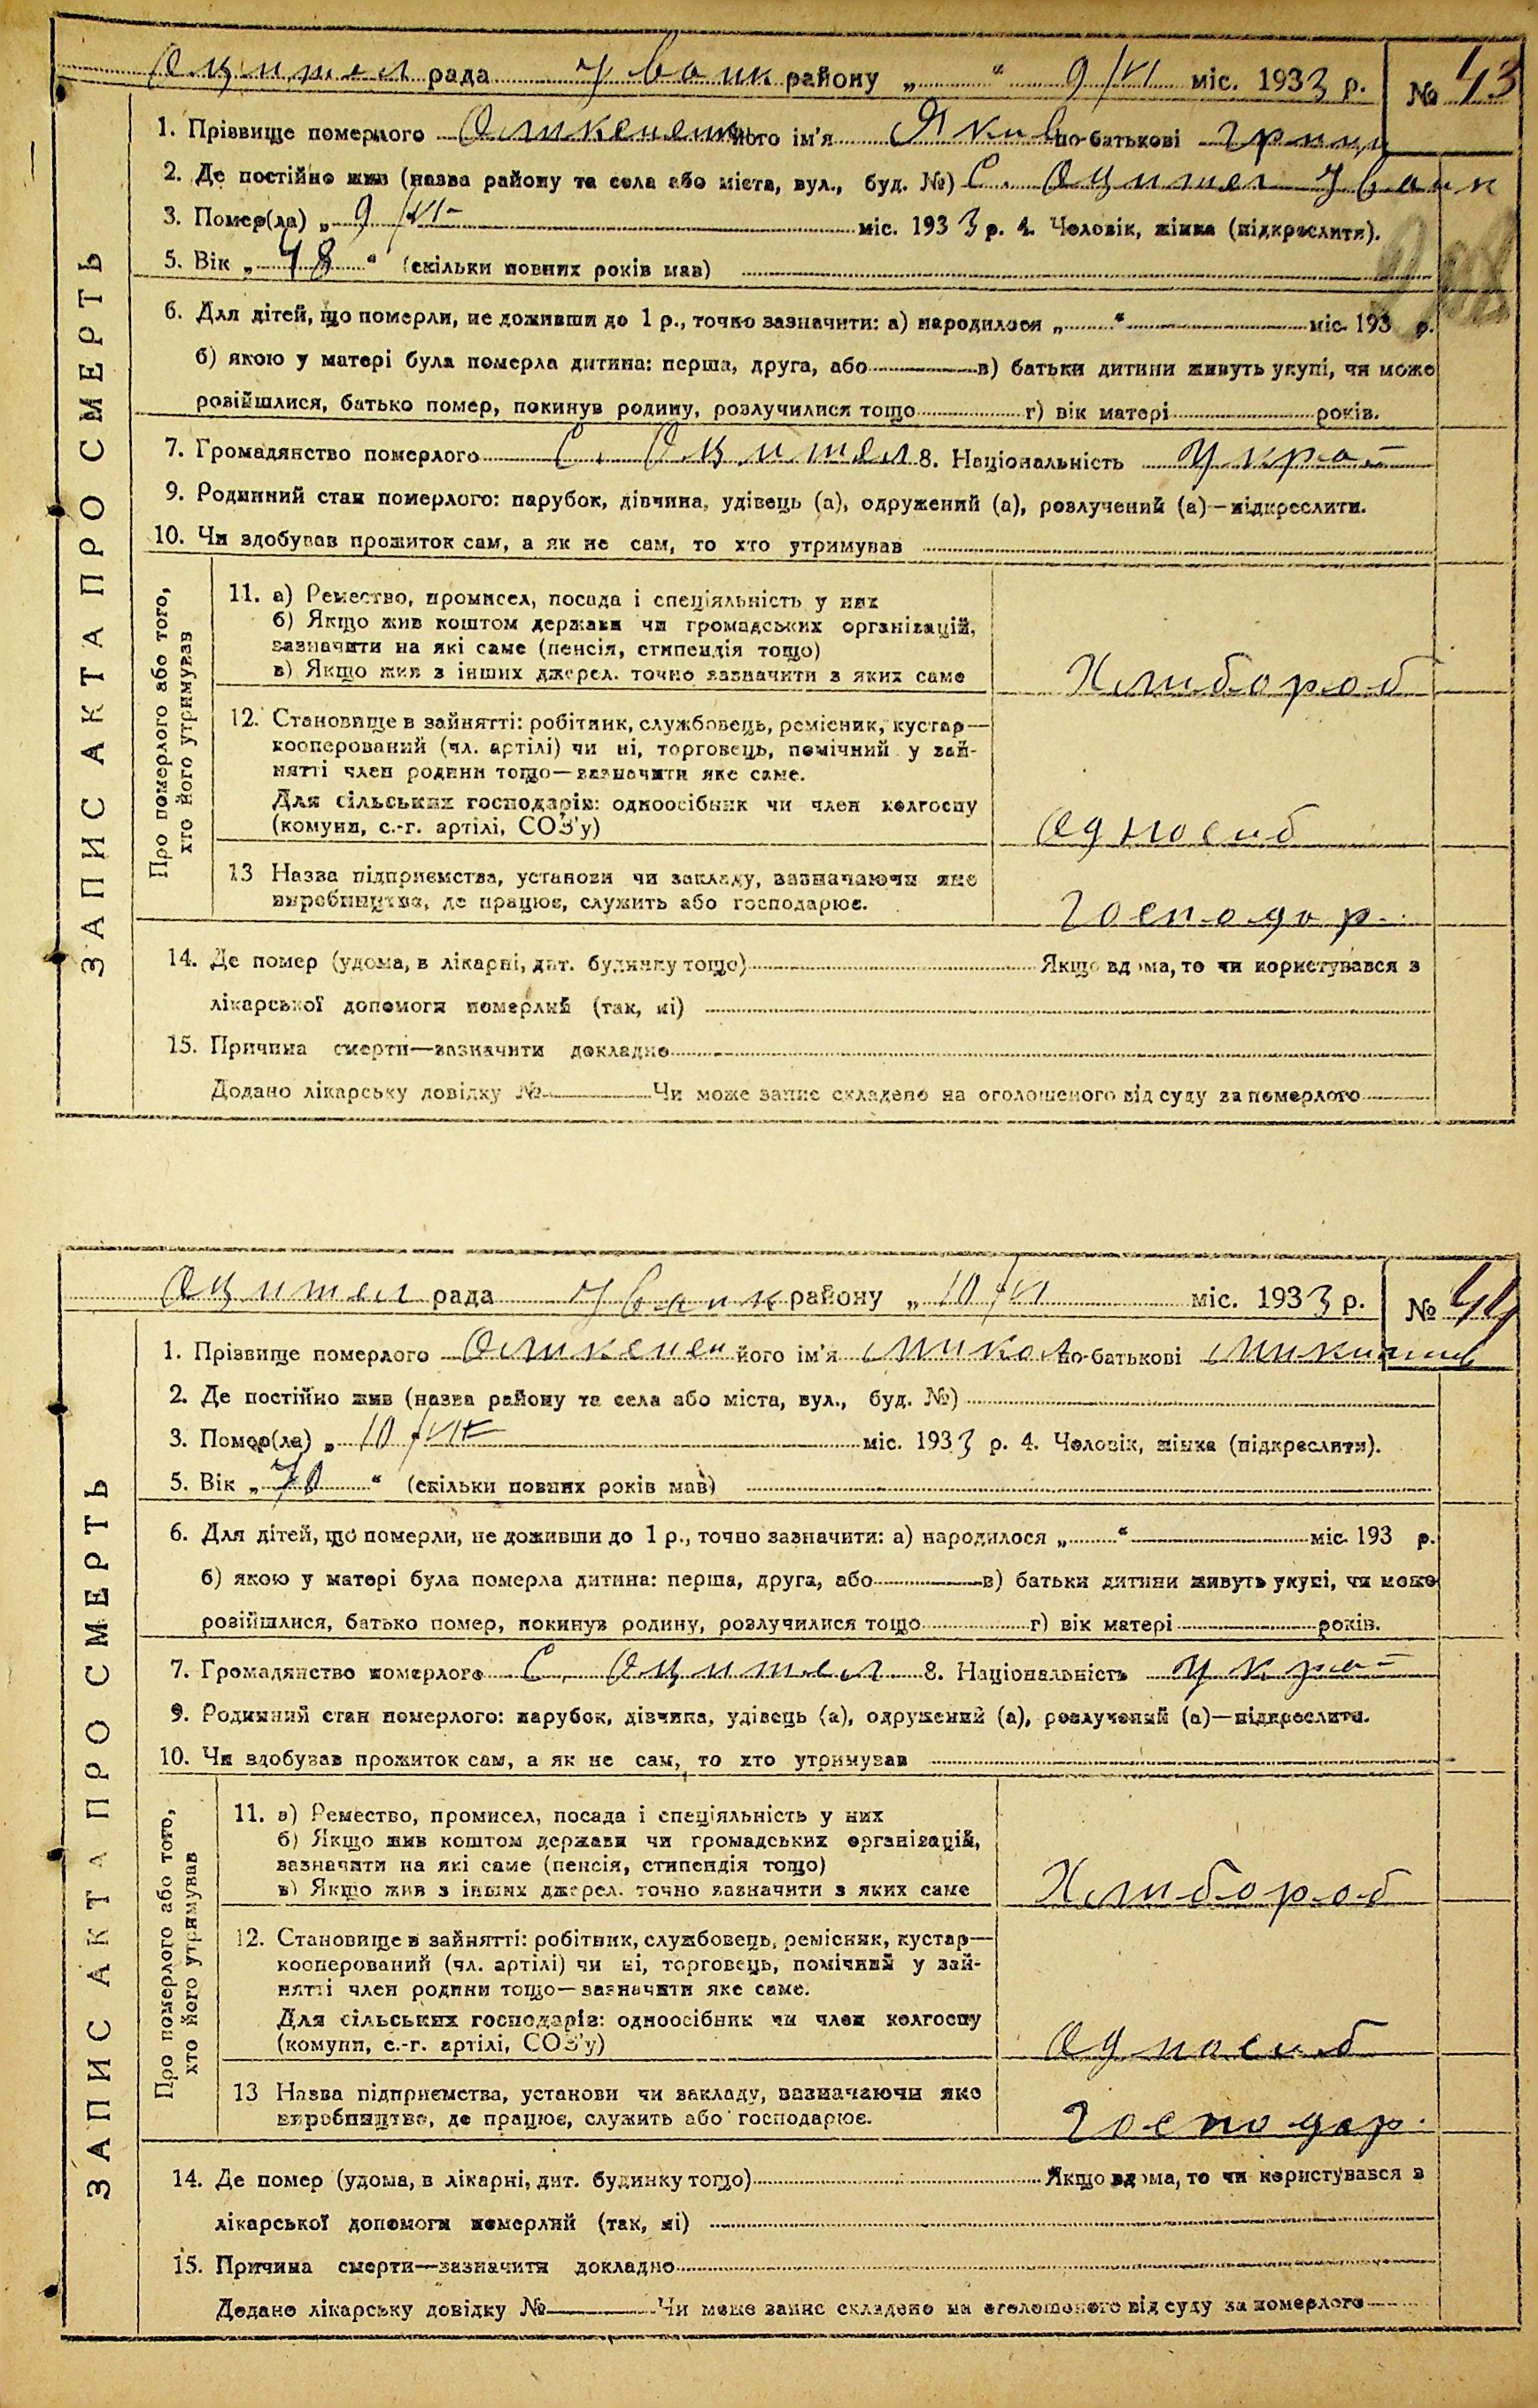 Оцител рада Уваик району „ “ 9/VI міс. 1933 р. № 43
1. Прізвище померлого його ім'я Яків по-батькові Гриц
2. Де постійно жив (назва району та села або міста, вул., буд. №) С. Оцител
3. Помер(ла) „ 9/VI- міс. 1933 р. 4. Чоловік, жінка (підкреслити).
5. Вік „ 48 “ (скільки повних років мав)
6. Для дітей, що померли, не доживши до 1 р., точно зазначити: а) народилося „ “ міс. 193 р.
б) якою у матері була померла дитина: перша, друга, або в) батьки дитини живуть укупі, чи може
розійшлися, батько помер, покинув родину, розлучилися тощо г) вік матері років.
7. Громадянство померлого С. Оцител 8. Національність Укра-
9. Родинний стан померлого: парубок, дівчина, удівець (а), одружений (а), розлучений (а)—підкреслити.
10. Чи здобував прожиток сам, а як не сам, то хто утримував
ЗАПИС АКТА ПРО СМЕРТЬ
Про померлого або того,
хто його утримував
11. а) Ремество, промисел, посада і спеціяльність у них
б) Якщо жив коштом держави чи громадських організацій,
зазначити на які саме (пенсія, стипендія тощо)
в) Якщо жив з інших джерел. точно зазначити з яких саме Хлибороб
12. Становище в зайнятті: робітник, службовець, ремісник, кустар—
кооперований (чл. артілі) чи ні, торговець, помічний у зай-
нятті член родини тощо—зазначити яке саме.
Для сільських господарів: одноосібник чи член колгоспу
(комуни, с.-г. артілі, СОЗ'у) Односиб
13 Назва підприємства, установи чи закладу, зазначаючи яке
виробництво, де працює, служить або господарює. Господар.
14. Де помер (удома, в лікарні, дит. будинку тощо) Якщо вдома, то чи користувався з
лікарської допомоги померлий (так, ні)
15. Причина смерти—зазначити докладно
Додано лікарську довідку № Чи може запис складено на оголошеного від суду за померлого
Оцител рада Уваик району „ 10/VI міс. 1933 р. № 44
1. Прізвище померлого його ім'я Микол по-батькові
2. Де постійно жив (назва району та села або міста, вул., буд. №)
3. Помер(ла) „ 10/VI міс. 1933 р. 4. Чоловік, жінка (підкреслити).
5. Вік „ 70 “ (скільки повних років мав)
6. Для дітей, що померли, не доживши до 1 р., точно зазначити: а) народилося „ “ міс. 193 р.
б) якою у матері була померла дитина: перша, друга, або в) батьки дитини живуть укупі, чи може
розійшлися, батько помер, покинув родину, розлучилися тощо г) вік матері років.
7. Громадянство померлого С. Оцител 8. Національність Укра-
9. Родинний стан померлого: парубок, дівчина, удівець (а), одружений (а), розлучений (а)—підкреслити.
10. Чи здобував прожиток сам, а як не сам, то хто утримував
ЗАПИС АКТА ПРО СМЕРТЬ
Про померлого або того,
хто його утримував
11. а) Ремество, промисел, посада і спеціяльність у них
б) Якщо жив коштом держави чи громадських організацій,
зазначити на які саме (пенсія, стипендія тощо)
в) Якщо жив з інших джерел. точно зазначити з яких саме Хлибороб
12. Становище в зайнятті: робітник, службовець, ремісник, кустар—
кооперований (чл. артілі) чи ні, торговець, помічний у зай-
нятті член родини тощо—зазначити яке саме.
Для сільських господарів: одноосібник чи член колгоспу
(комуни, с.-г. артілі, СОЗ'у) Односиб
13 Назва підприємства, установи чи закладу, зазначаючи яке
виробництво, де працює, служить або господарює. Господар.
14. Де помер (удома, в лікарні, дит. будинку тощо) Якщо вдома, то чи користувався з
лікарської допомоги померлий (так, ні)
15. Причина смерти—зазначити докладно
Додано лікарську довідку № Чи може запис складено на оголошеного від суду за померлого